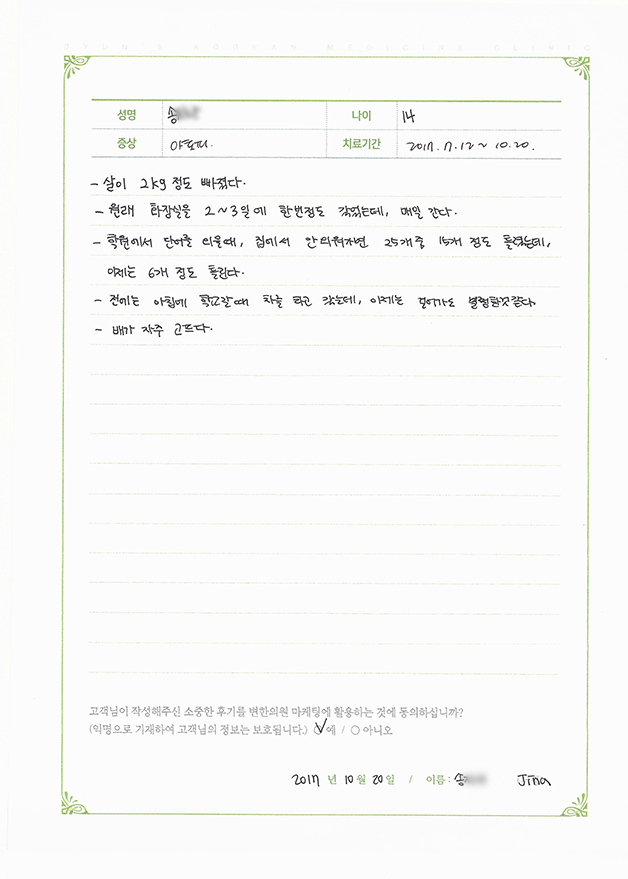 BYUN'S KOREAN MEDICINE CLINIC
성명 송 나이 14
증상 아토피. 치료기간 2017. 7. 12 ~ 10. 20.
- 살이 2kg 정도 빠졌다.
- 원래 화장실을 2~3일에 한번정도 갔었는데, 매일 간다.
- 학원에서 단어를 외울때, 집에서 안외워가면 25개중 15개 정도 틀렸는데,
이제는 6개 정도 틀린다.
- 전에는 아침에 학교갈때 차를 타고 갔는데, 이제는 걸어가도 멀쩡한것같다
- 배가 자주 고프다.
고객님이 작성해주신 소중한 후기를 변한의원 마케팅에 활용하는 것에 동의하십니까?
(익명으로 기재하여 고객님의 정보는 보호됩니다.) ○ 예 / ○ 아니오
2017 년 10 월 20 일 / 이름 : 송 Jina